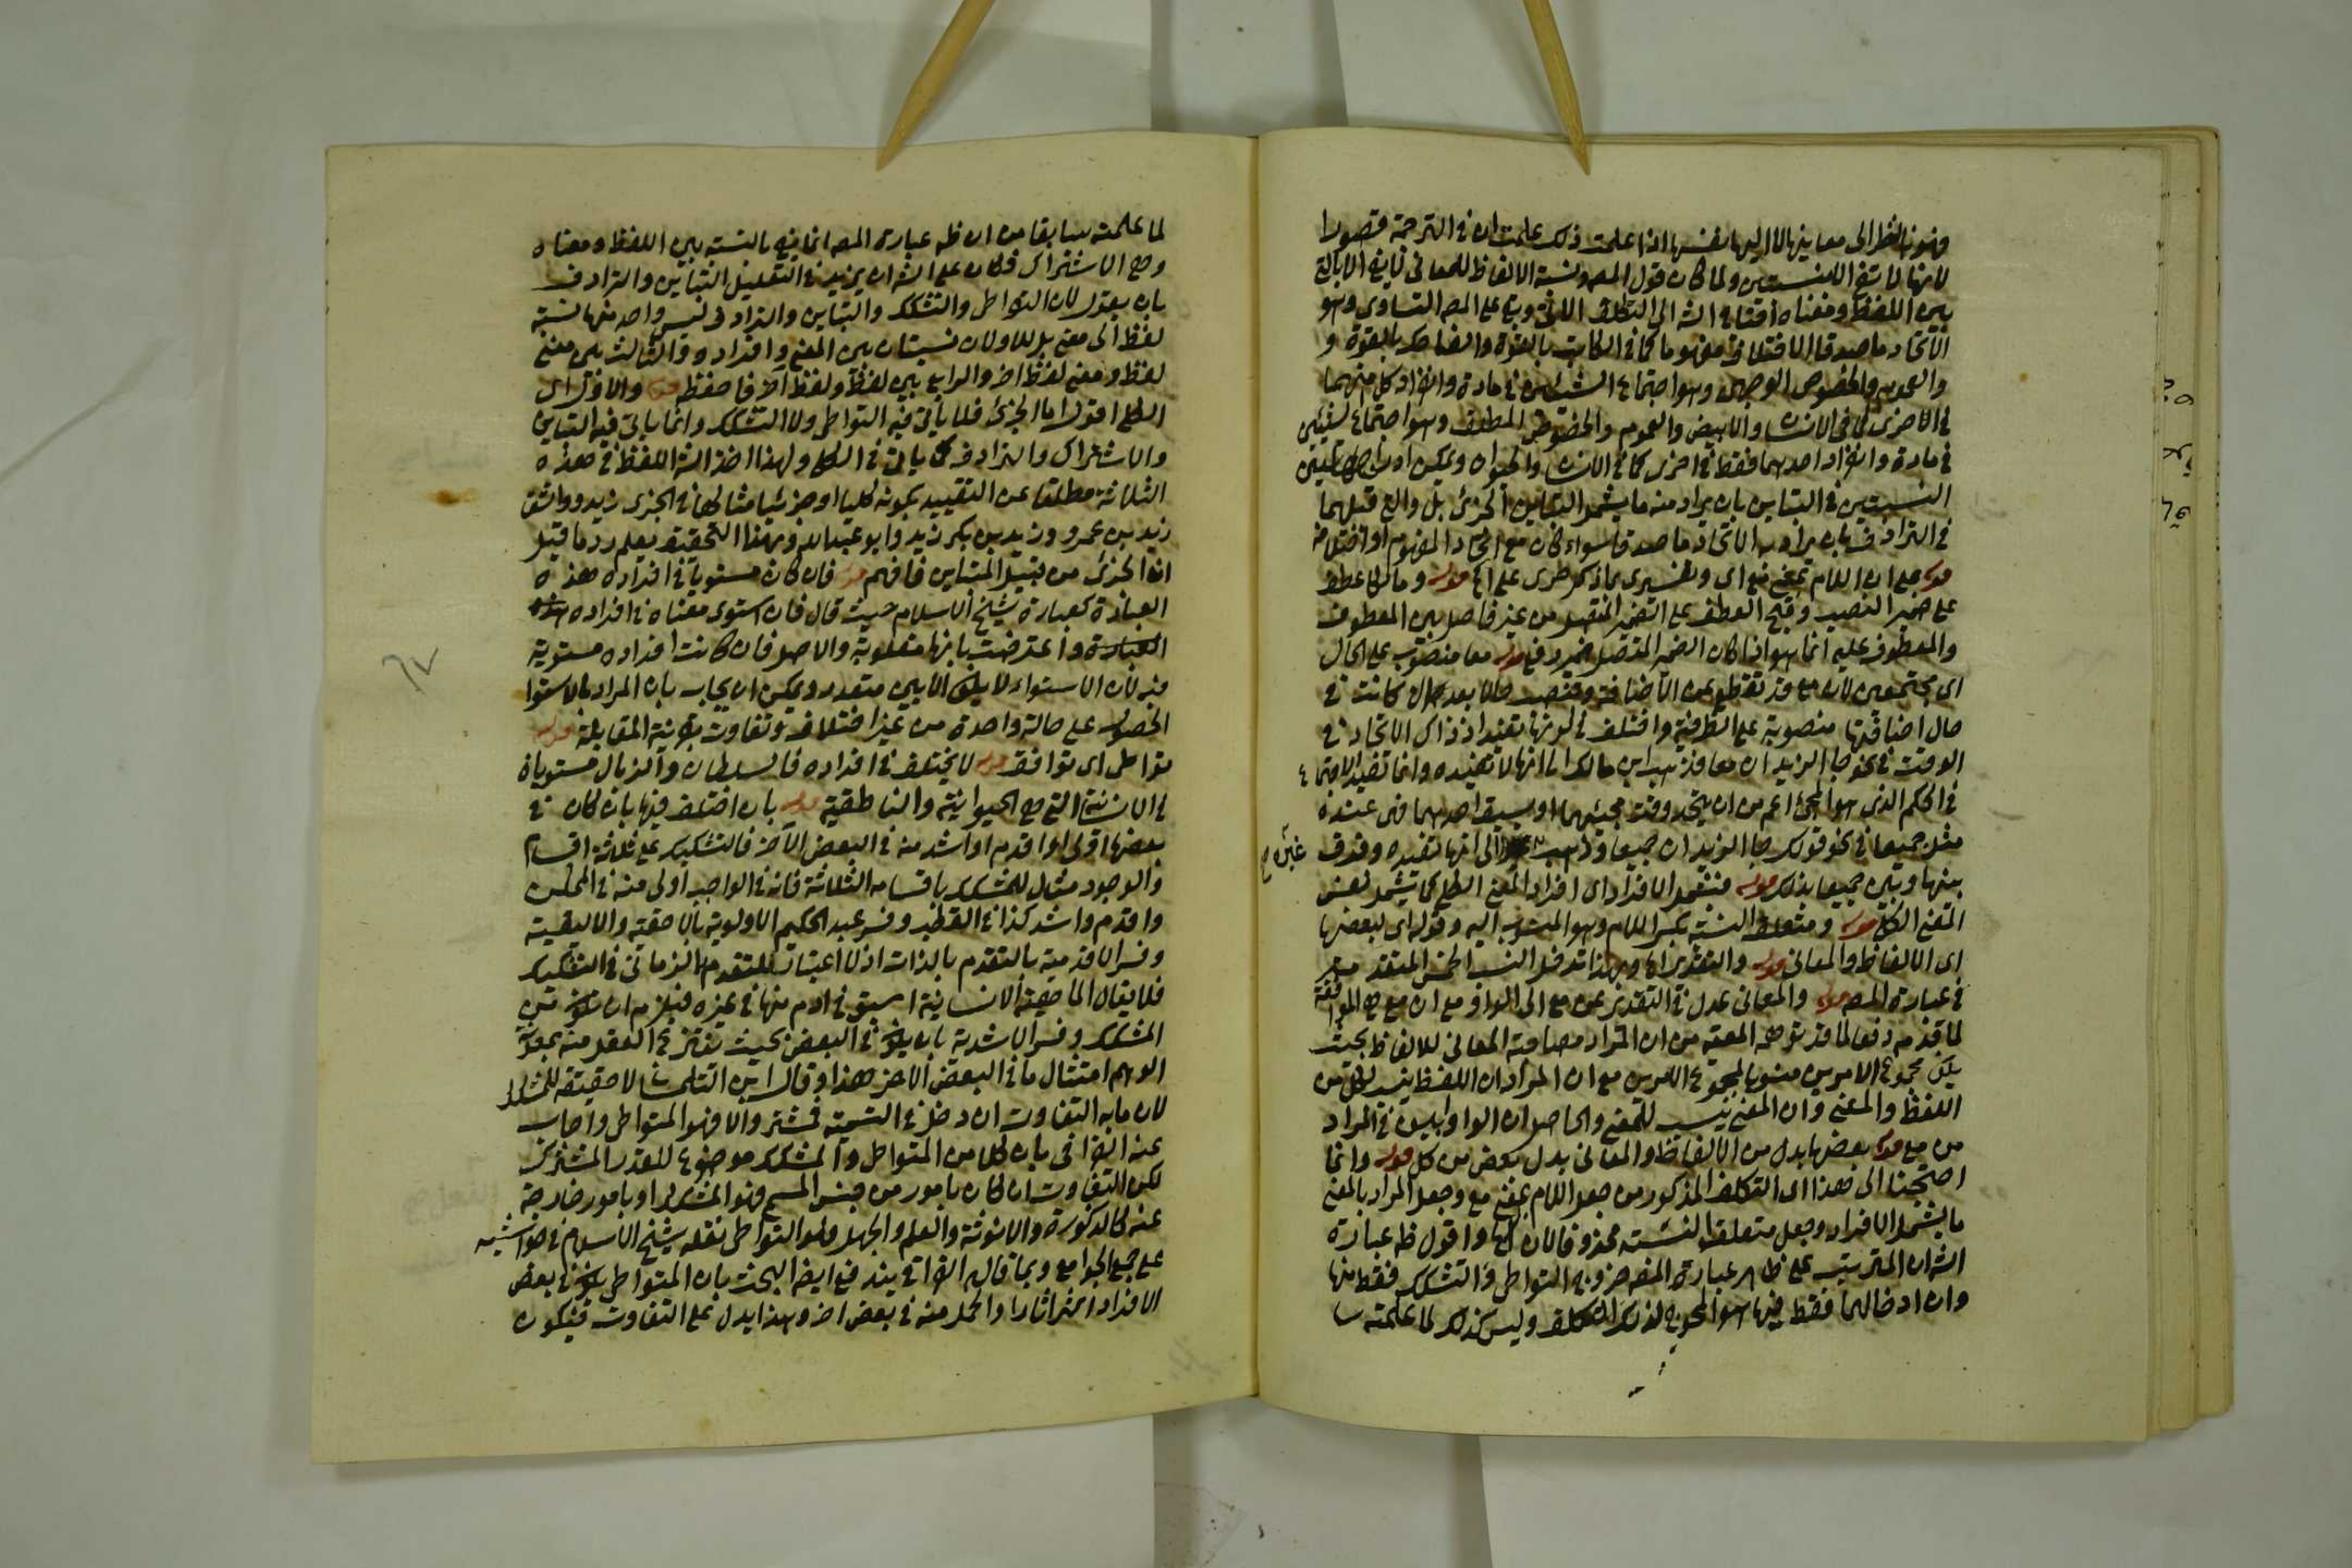 فهو بالنظر الى معانيها لا اليها نفسها اذا علمت ذلك علمت ان في الترجمة قصورا
لانها لا تفي ولما كان قول المص ونسبة الالفاظ للمعاني
بين اللفظ ومعناه الش الى التكلف الاتي وبقي على المص التساوي وهو
الاتحاد ماصدقا لا مفهوما كما في الكاتب بالقوة والضاحك بالقوة و
والعموم والخصوص الوجهي وهو اجتماع الشيئين في مادة وانفراد كل منهما
في الاخرى كما في الانسان والابيض والعموم والخصوص المطلق وهو اجتماع لشيئين
في مادة وانفراد احدهما فقط في اخرى كما في الانسان والحيوان ويمكن هاتين
النسبتين في التباين بان يراد منه ما يشمل التباين الجزئي بل قبلهما
في الترادف بان يراد به الاتحاد ماصدقا سواء كان مع اتحاد المفهوم او اختلافه
قوله مع ان اللام بمعنى مع اي وتفسيري بما ذكر طرى على قوله وما كالعطف
على ضمير النصب وقبح العطف على الضمير المتصل من غير فاصل بين المعطوف
والمعطوف عليه انما هو اذا كان الضمير المتصل ضمير رفع قوله معا منصوب على الحال
اي مجتمعين لان مع قد تقطع عن الاضافة وتنصب حالا بعد كانت في
حال اضافتها منصوبة على الظرفية واختلف في كونها تفيد اذ ذاك الاتحاد في
الوقت في نحو جا الزيدان معا فذهب ابن مالك الى انها لا تفيده وانما تفيد الاجتماع
في الحكم الذي هو المجئ اعم من ان يتحد وقت مجيئهما او يسبق احدهما فهي عنده
مثل جميعا في نحو قولك جا الزيدان جميعا وذهب الى انها تفيده وفرق
غيره
بينها وبين جميعا بذلك قوله فتشمل الافراد اي افراد المعنى الكلي كما تشمل نفس
المعنى الكلي قوله ومتعلق النسبة بكسر اللام وهو المنسوب اليه وقوله اي لبعضها
اي الالفاظ والمعاني قوله والتقدير
في عبارة المص قوله والمعاني عدل في التقدير عن مع الى الواو مع ان مع هي الموافقة
لما قدمه دفعا لما قد توهمه المعية من ان المراد مصاحبة المعاني للالفاظ بحيث
يكون مجموع الامرين منسوبا لمجموع الامرين مع ان المراد ان اللفظ ينسب لكل من
اللفظ والمعنى وان المعنى ينسب للمعنى والحاصل ان الواو في المراد
من مع قوله بعضها بدل من الالفاظ والمعاني بدل بعض من كل قوله وانما
احتجنا الى هذا اي التكلف المذكور من جعل اللام بمعنى مع وجعل المراد بالمعنى
ما يشمل الافراد وجعل متعلق النسبة محذوفا لان واقول ظ عبارة
الش ان المترتب على ظاهر عبارة المص خروج التواطي والتشكك فقط منها
وان ادخالهما فقط فيها هو المحوج لذلك التكلف وليس كذلك لما علمته سا
لما علمته سابقا من ان ظ عبارة المص انما يفي بالنسبة بين اللفظ ومعناه
وهي الاشتراك فكان على الش ان يزيد في التعليل التباين والترادف
بان يقول لان التواطي والتشكك والتباين والترادف ليس واحد منها نسبة
لفظ الى معنى بل الاولان نسبتان بين المعنى وافراده والثالث بين معنى
لفظ ومعنى لفظ اخر والرابع بين لفظ ولفظ آخر فاحفظه قوله والاول اي
الكلي اقول اما الجزئي فلا يأتي فيه التواطي ولا التشكك وانما يأتي فيه التباين
والاشتراك والترادف كما يأتي في الكلي ولهذا اخذ الش اللفظ في هذه
الثلاثة مطلقا عن التقييد بكونه كليا او جزئيا مثالها في الجزئي زيد وواشق
زيد بن عمرو وزيد بن بكر زيد وابو عبدالله وبهذا التحقيق تعلم رد ما قيل
ان الجزئي من قبيل المتباين فافهم قوله فان كان مستويا في افراده هذه
العبارة كعبارة شيخ الاسلام حيث قال فان استوى معناه في افراده
العبارة واعترضت بانها مقلوبة والاصل فان كانت افراده مستوية
فيه لان الاستواء لا يكون الا بين متعدد ويمكن ان يجاب بان المراد بالاستوا
الحصول على حالة واحدة من غير اختلاف وتفاوت بقرينة المقابلة قوله
تواطي اي توافق قوله لا يختلف في افراده فالسلطان والزبال مستويان
في الانسانية التي هي الحيوانية والناطقية قوله بان اختلف فيها بان كان في
بعضها اولى او اقدم او اشد منه في البعض الآخر فالتشكيك على ثلاثة اقسام
والوجود مثال للمشكك باقسامه الثلاثة فانه في الواجب اولى منه في الممكن
واقدم واشد كذا في القطب وفسر عبد الحكيم الاولوية بالاحقية والاليقية
وفسر الاقدمية بالتقدم بالذات اذ لا اعتبار للتقدم الزماني في التشكيك
فلا يقال الماهية الانسانية اسبق في ادم منها في غيره فيلزم ان تكون من
المشكك وفسر الاشدية بان يكون في البعض بحيث ينتزع العقل منه بمعونة
الوهم امثال ما في البعض الاخر هذا وقال ابن التلمساني لا حقيقة للمشكك
لان ما به التفاوت ان دخل في التسمية فمشترك والا فهو المتواطي واجاب
عنه القرافي بان كلا من المتواطي والمشكك موضوع للقدر المشترك
لكن التفاوت ان كان بامور من جنس المسمى فهو المشكك او بامور خارجة
عنه كالذكورة والانوثة والعلم والجهل فهو التواطي نقله شيخ الاسلام في حواشيه
على جمع الجوامع وبما قاله القرافي يندفع ايضا البحث بان المتواطي يكون في بعض
الافراد اكثر اثارا واكمل منه في بعض اخر وهذا يدل على التفاوت فيكون
٦٧